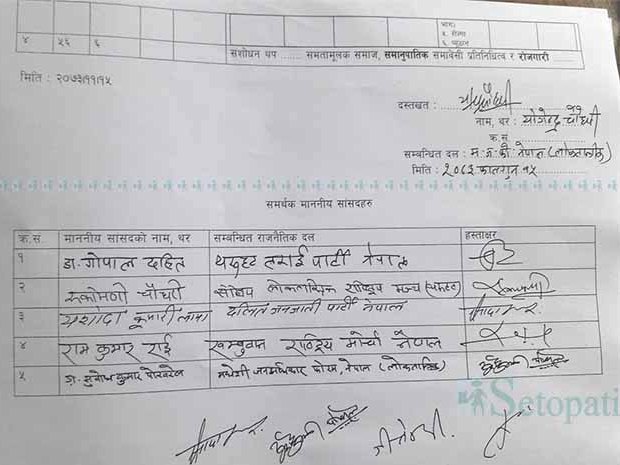 भाग।
४ ५६ ६
संशोधन थप ...... समतामूलक समाज, समानुपातिक समावेशी प्रतिनिधित्व र रोजगारी
मिति : २०७३।११।१५
दस्तखत :
नाम, थर : योगेन्द्र चौधरी
क.सं.
सम्बन्धित दल : म.ज.फो. नेपाल (लोकतान्त्रिक)
मिति : २०७३ फाल्गुन १५
समर्थक माननीय सांसदहरु
क्र.सं. माननीय सांसदको नाम, थर सम्बन्धित राजनैतिक दल हस्ताक्षर
१ डा. गोपाल दहित थरुहट तराई पार्टी नेपाल
२ रुकमिणी चौधरी संघिय लोकतान्त्रिक राष्ट्रिय मञ्च (थरुहट)
३ यशोदा कुमारी लामा दलित जनजाती पार्टी नेपाल
४ राम कुमार राई खम्बुवान राष्ट्रिय मोर्चा नेपाल
५ सुबोध कुमार पोखरेल मधेशी जनअधिकार फोरम, नेपाल (लोकतान्त्रिक)
Setopati